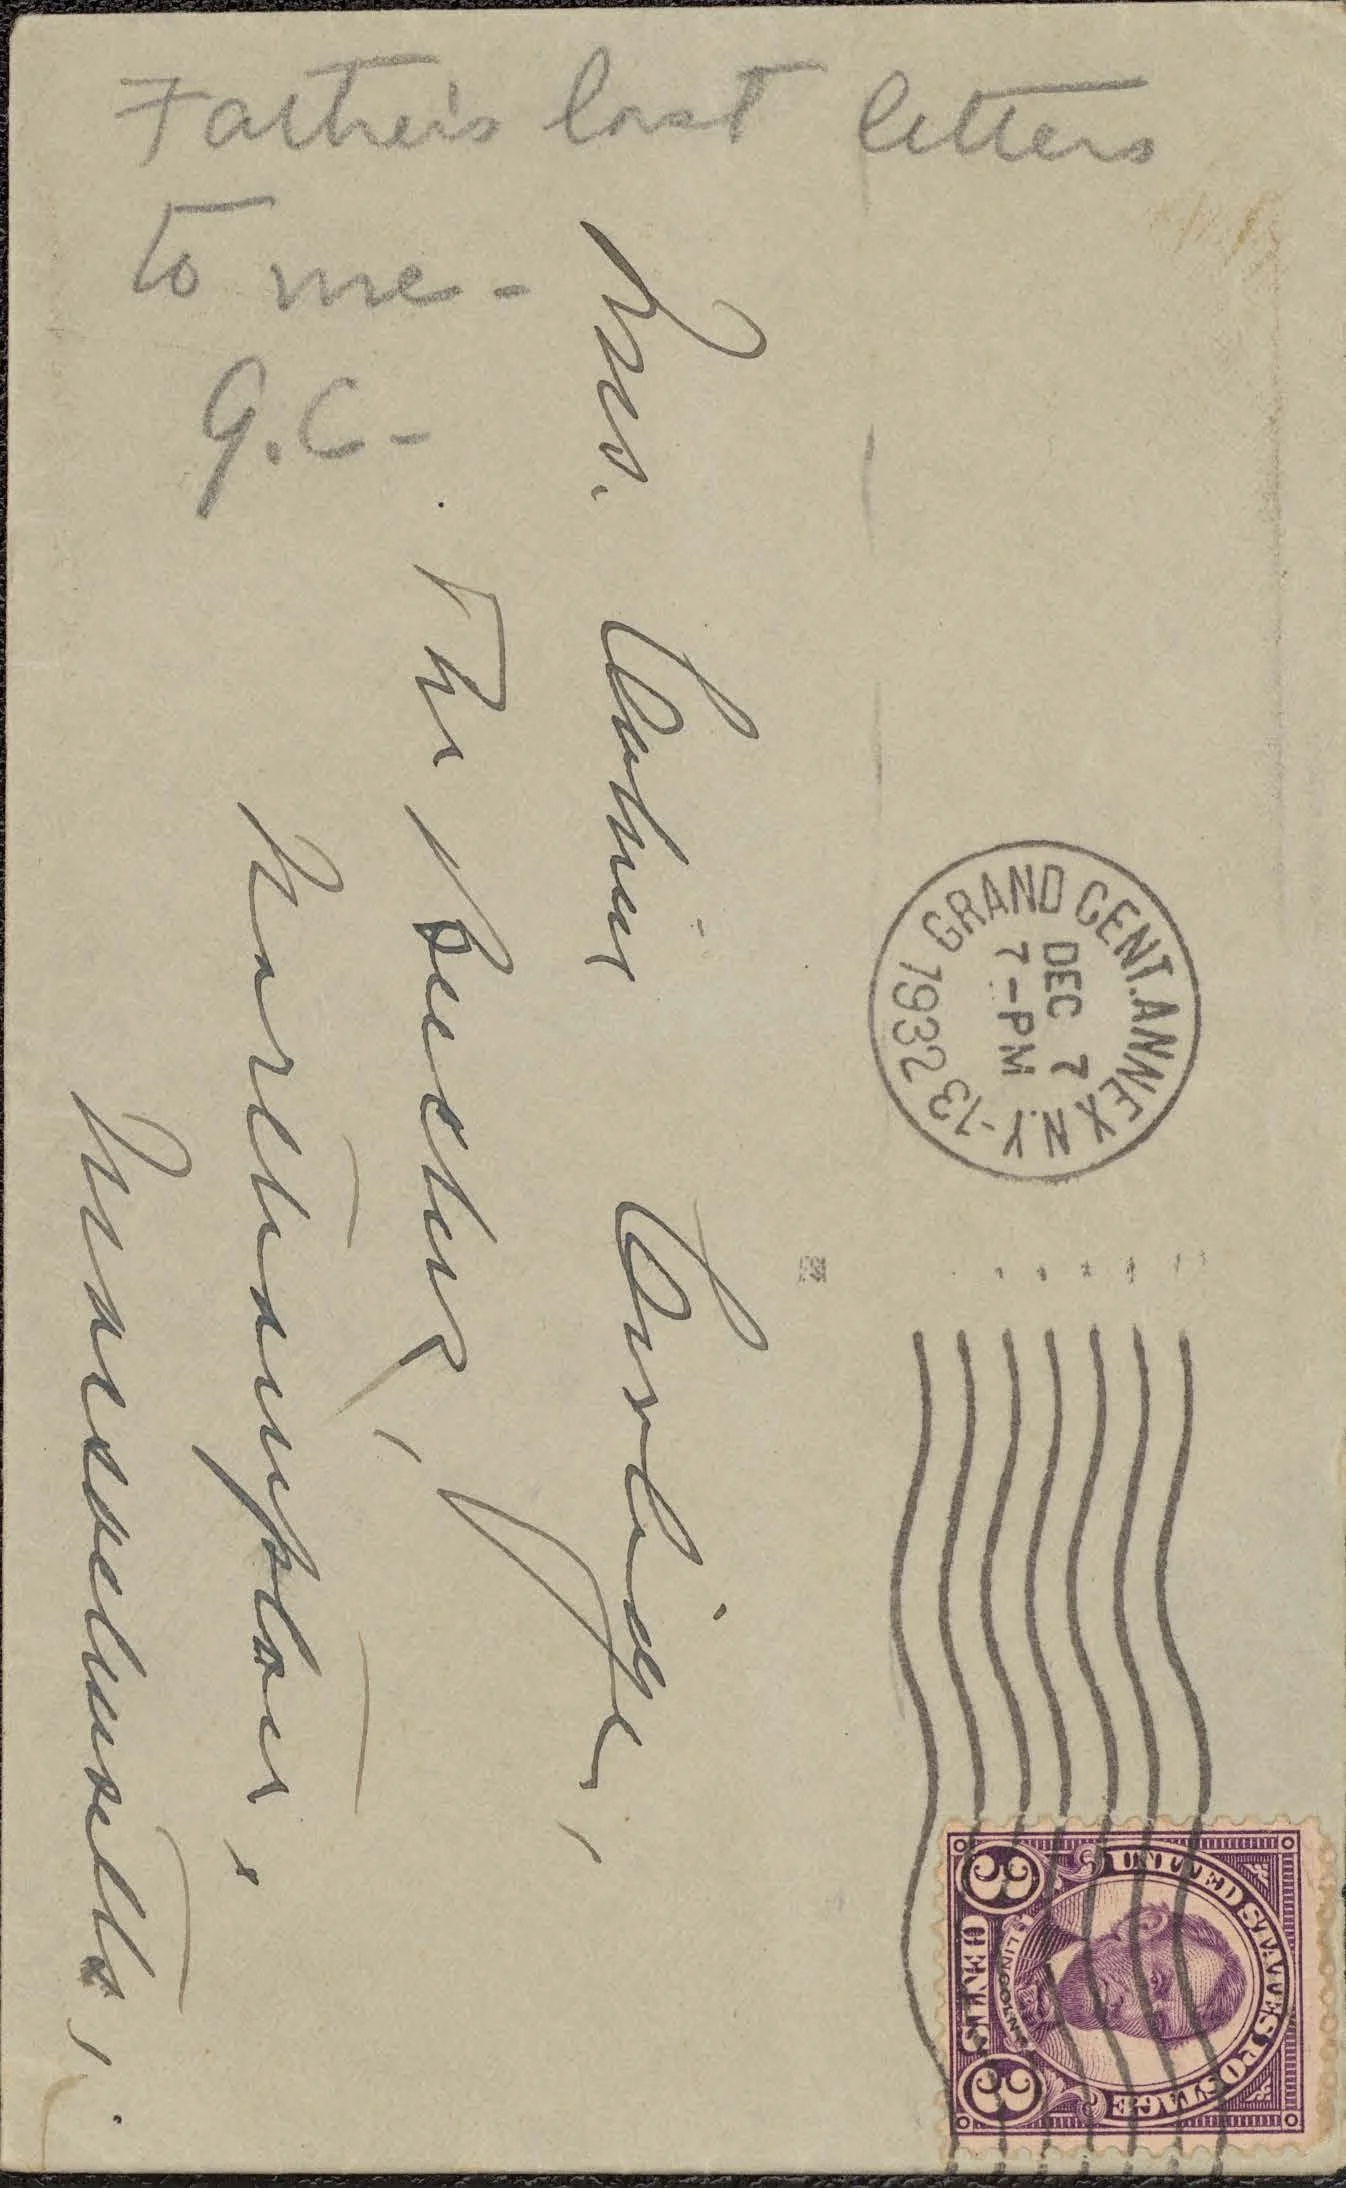 Father's last letters
to me -
G.C-
Mrs. Calvin Coolidge,
The Beeches,
Northampton,
Massachusetts,
GRAND CENT. ANNEX N.Y. -13
DEC 7
7-PM
1932
UNITED STATES POSTAGE
LINCOLN
3 CENTS 3